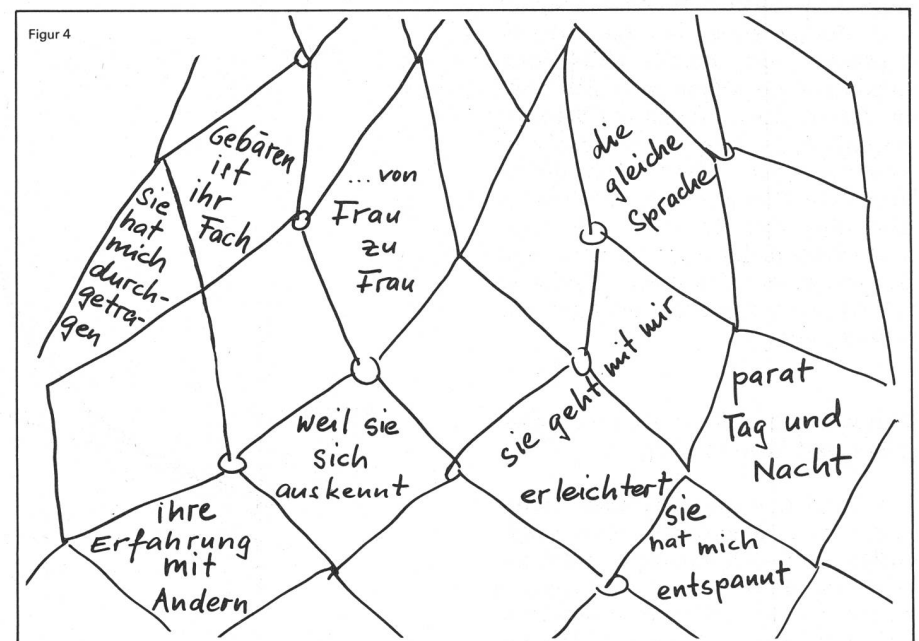 Figur 4
Gebären
ist
ihr
Fach
Sie
hat
mich
durch-
getra-
gen
... von
Frau
zu
Frau
die
gleiche
Sprache
sie geht mit mir
parat
Tag und
Nacht
weil sie
sich
auskennt
erleichtert
sie
hat mich
entspannt
ihre
Erfahrung
mit
Andern